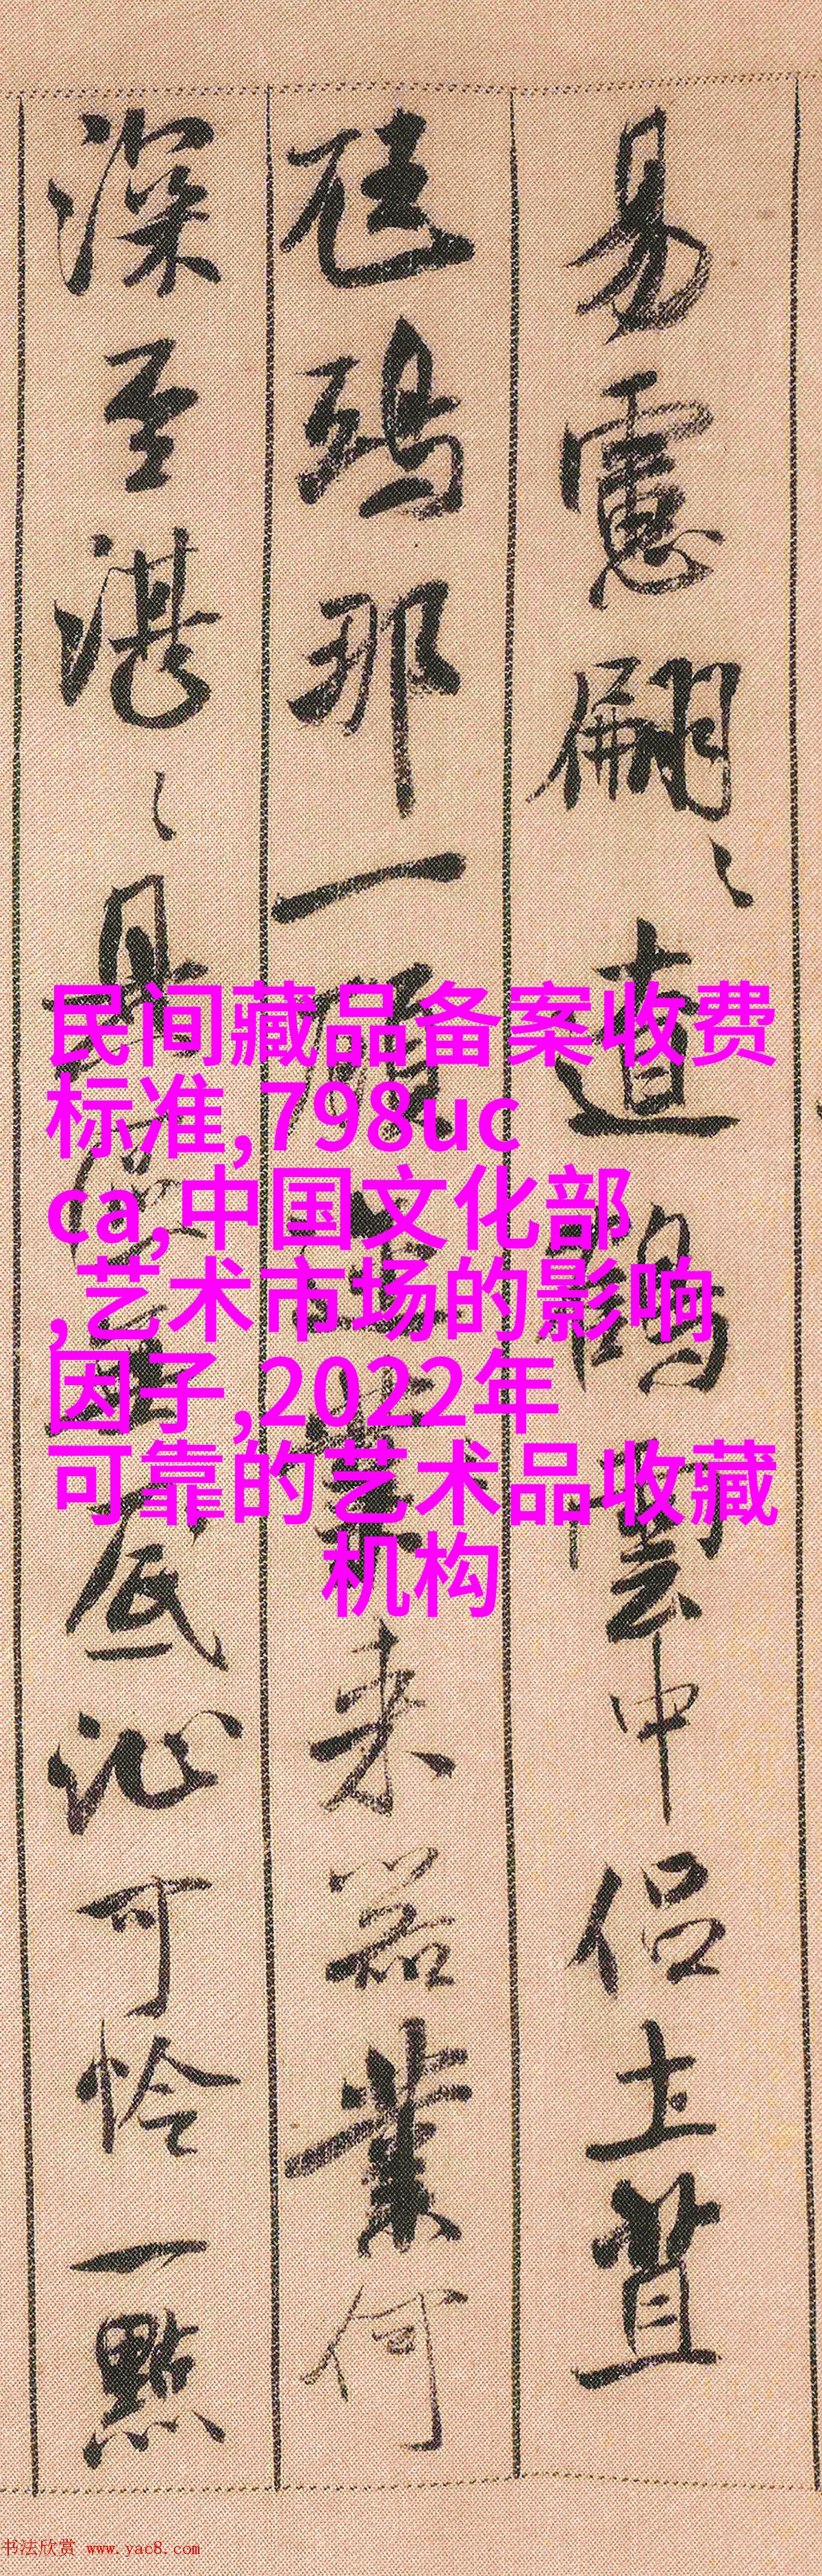 易慮翩〻直鴻雲中侣土苴
鵶那一顧
来若業何
深至湛〻
底沁可怜一點
民间藏品备案收费
标准,798uc
ca,中国文化部
,艺术市场的影响
因子,2022年
可靠的艺术品收藏
机构
书法欣赏 www.yac8.com